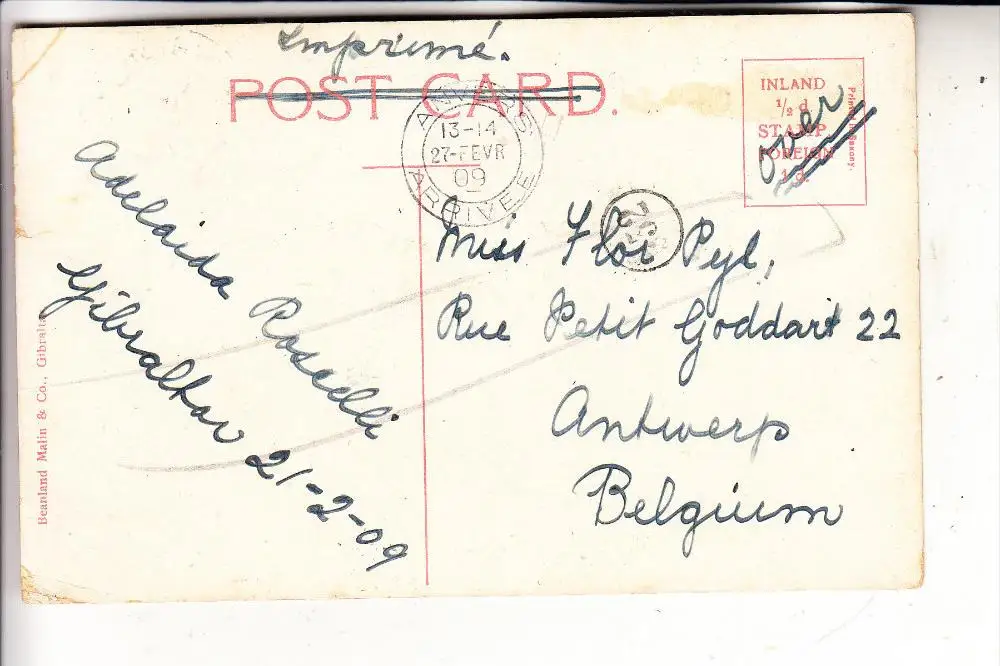 Imprimé.
POST CARD.
INLAND
½ d
STAMP
FOREIGN
1 d.
Printed in Saxony.
over
ANVERS
13-14
27-FEVR
09
ARRIVEE
Adelaida Rosaelli
Gibraltar 21-2-09
Miss Flor Pyl,
Rue Petit Goddart 22
Antwerp
Belgium
Beanland Malin & Co., Gibraltar